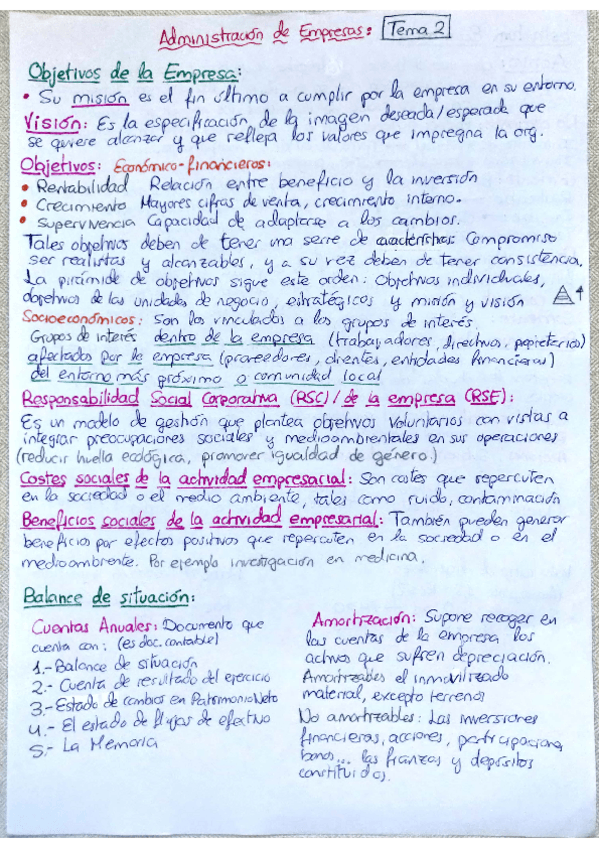 Administración de Empresas: Tema 2
Objetivos de la Empresa:
• Su misión es el fin último a cumplir por la empresa en su entorno.
Visión: Es la especificación de la imagen deseada/esperada que
se quiere alcanzar y que refleja los valores que impregna la org.
Objetivos: Económico-financieros:
• Rentabilidad Relación entre beneficio y la inversión
• Crecimiento Mayores cifras de venta, crecimiento interno.
• Supervivencia Capacidad de adaptarse a los cambios.
Tales objetivos deben de tener una serie de características: Compromiso
ser realistas y alcanzables, y a su vez deben de tener consistencia.
La pirámide de objetivos sigue este orden: Objetivos individuales,
objetivos de las unidades de negocio, estratégicos y misión y visión
Socioeconómicos: Son los vinculados a los grupos de interés.
Grupos de interés dentro de la empresa (trabajadores, directivos, propietarios)
afectados por la empresa (proveedores, clientes, entidades financieras)
del entorno más próximo o comunidad local
Responsabilidad Social Corporativa (RSC) / de la empresa (RSE):
Es un modelo de gestión que plantea objetivos voluntarios con vistas a
integrar preocupaciones sociales y medioambientales en sus operaciones
(reducir huella ecológica, promover igualdad de género.)
Costes sociales de la actividad empresarial: Son costes que repercuten
en la sociedad o el medio ambiente, tales como ruido, contaminación
Beneficios sociales de la actividad empresarial: También pueden generar
beneficios por efectos positivos que repercuten en la sociedad o en el
medioambiente. Por ejemplo investigación en medicina.
Balance de situación:
Cuentas Anuales: Documento que
cuenta con: (es doc. contable)
1.- Balance de situación
2.- Cuenta de resultado del ejercicio
3.- Estado de cambios en Patrimonio Neto
4.- El estado de flujos de efectivo
5.- La Memoria
Amortización: Supone recoger en
las cuentas de la empresa los
activos que sufren depreciación.
Amortizables el inmovilizado
material, excepto terrenos
No amortizables: Las inversiones
financieras, acciones, participaciones
bonos... las fianzas y depósitos
constituidos.